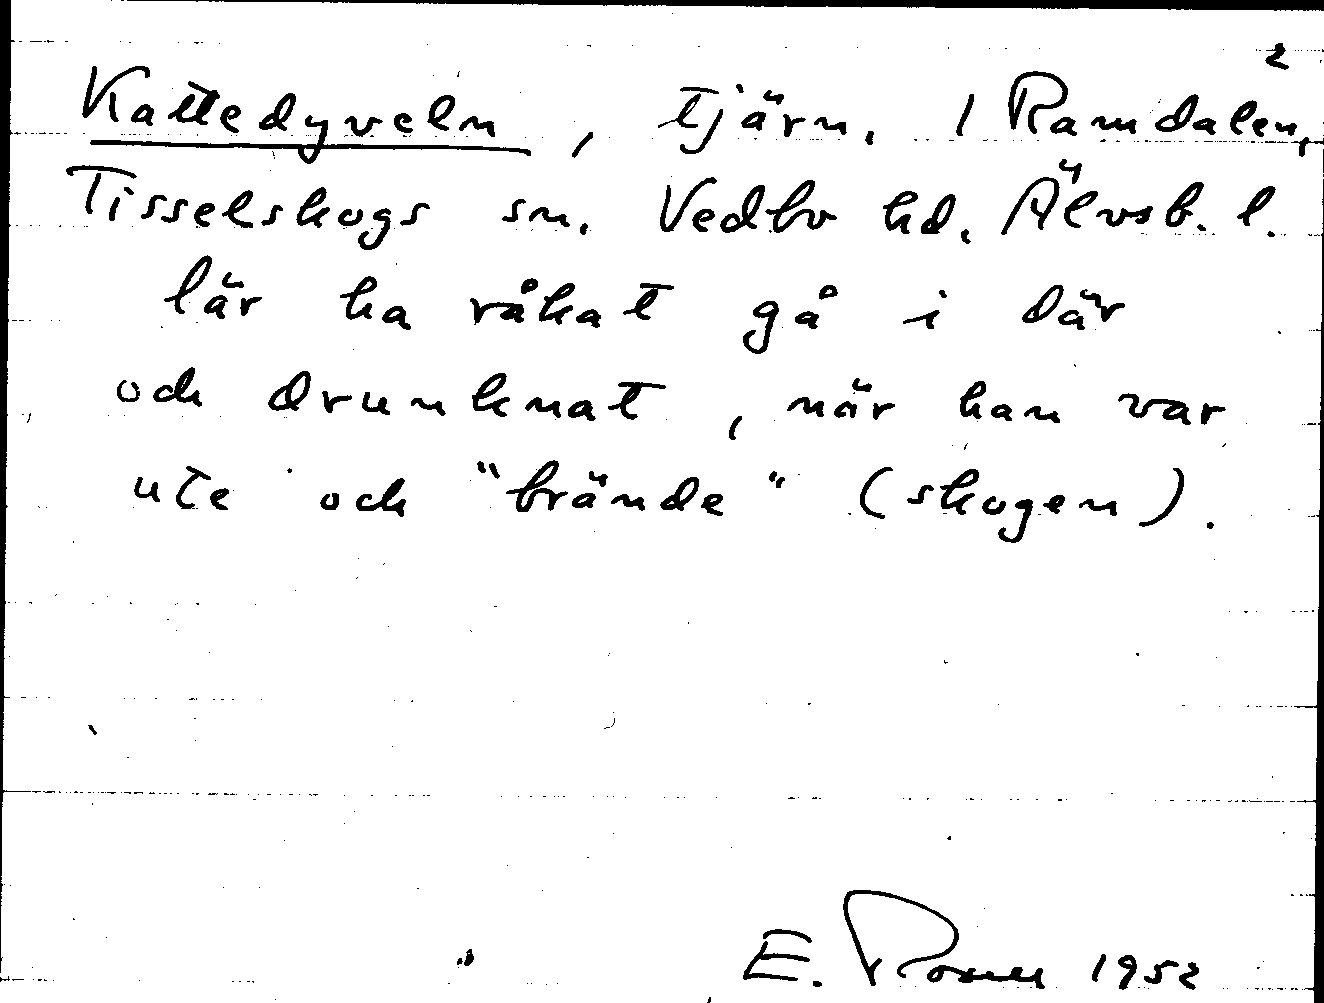 2
Kattedyveln, tjärn. I Ramdalen,
Tisselskogs sn. Vedbo hd. Älvsb. l.
lär ha råkat gå i där
och drunknat, när han var
ute och "brände" (skogen).
E. Rosell 1952